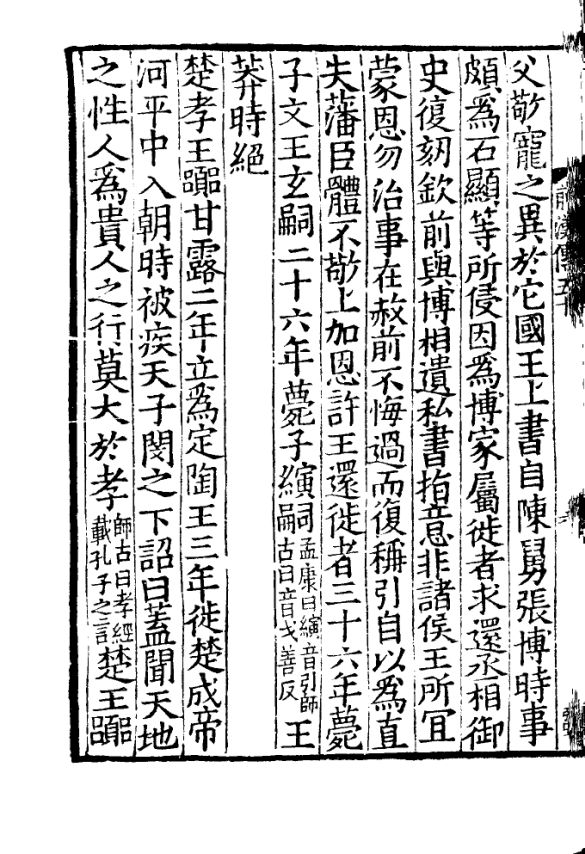 父敬寵之異於它國王上書自陳舅張博時事
頗爲石顯等所侵因爲博家屬徙者求還丞相御
史復劾欽前與博相遺私書指意非諸侯王所冝
蒙恩勿治事在赦前不悔過而復稱引自以爲直
失藩臣體不敬上加恩許王還徙者三十六年薨
子文王玄嗣二十六年薨子縯嗣孟康曰縯音引師古曰音弋善反王
莽時絕
楚孝王嚻甘露二年立爲定陶王三年徙楚成帝
河平中入朝時被疾天子閔之下詔曰蓋聞天地
之性人爲貴人之行莫大於孝師古曰孝經載孔子之言楚王嚻